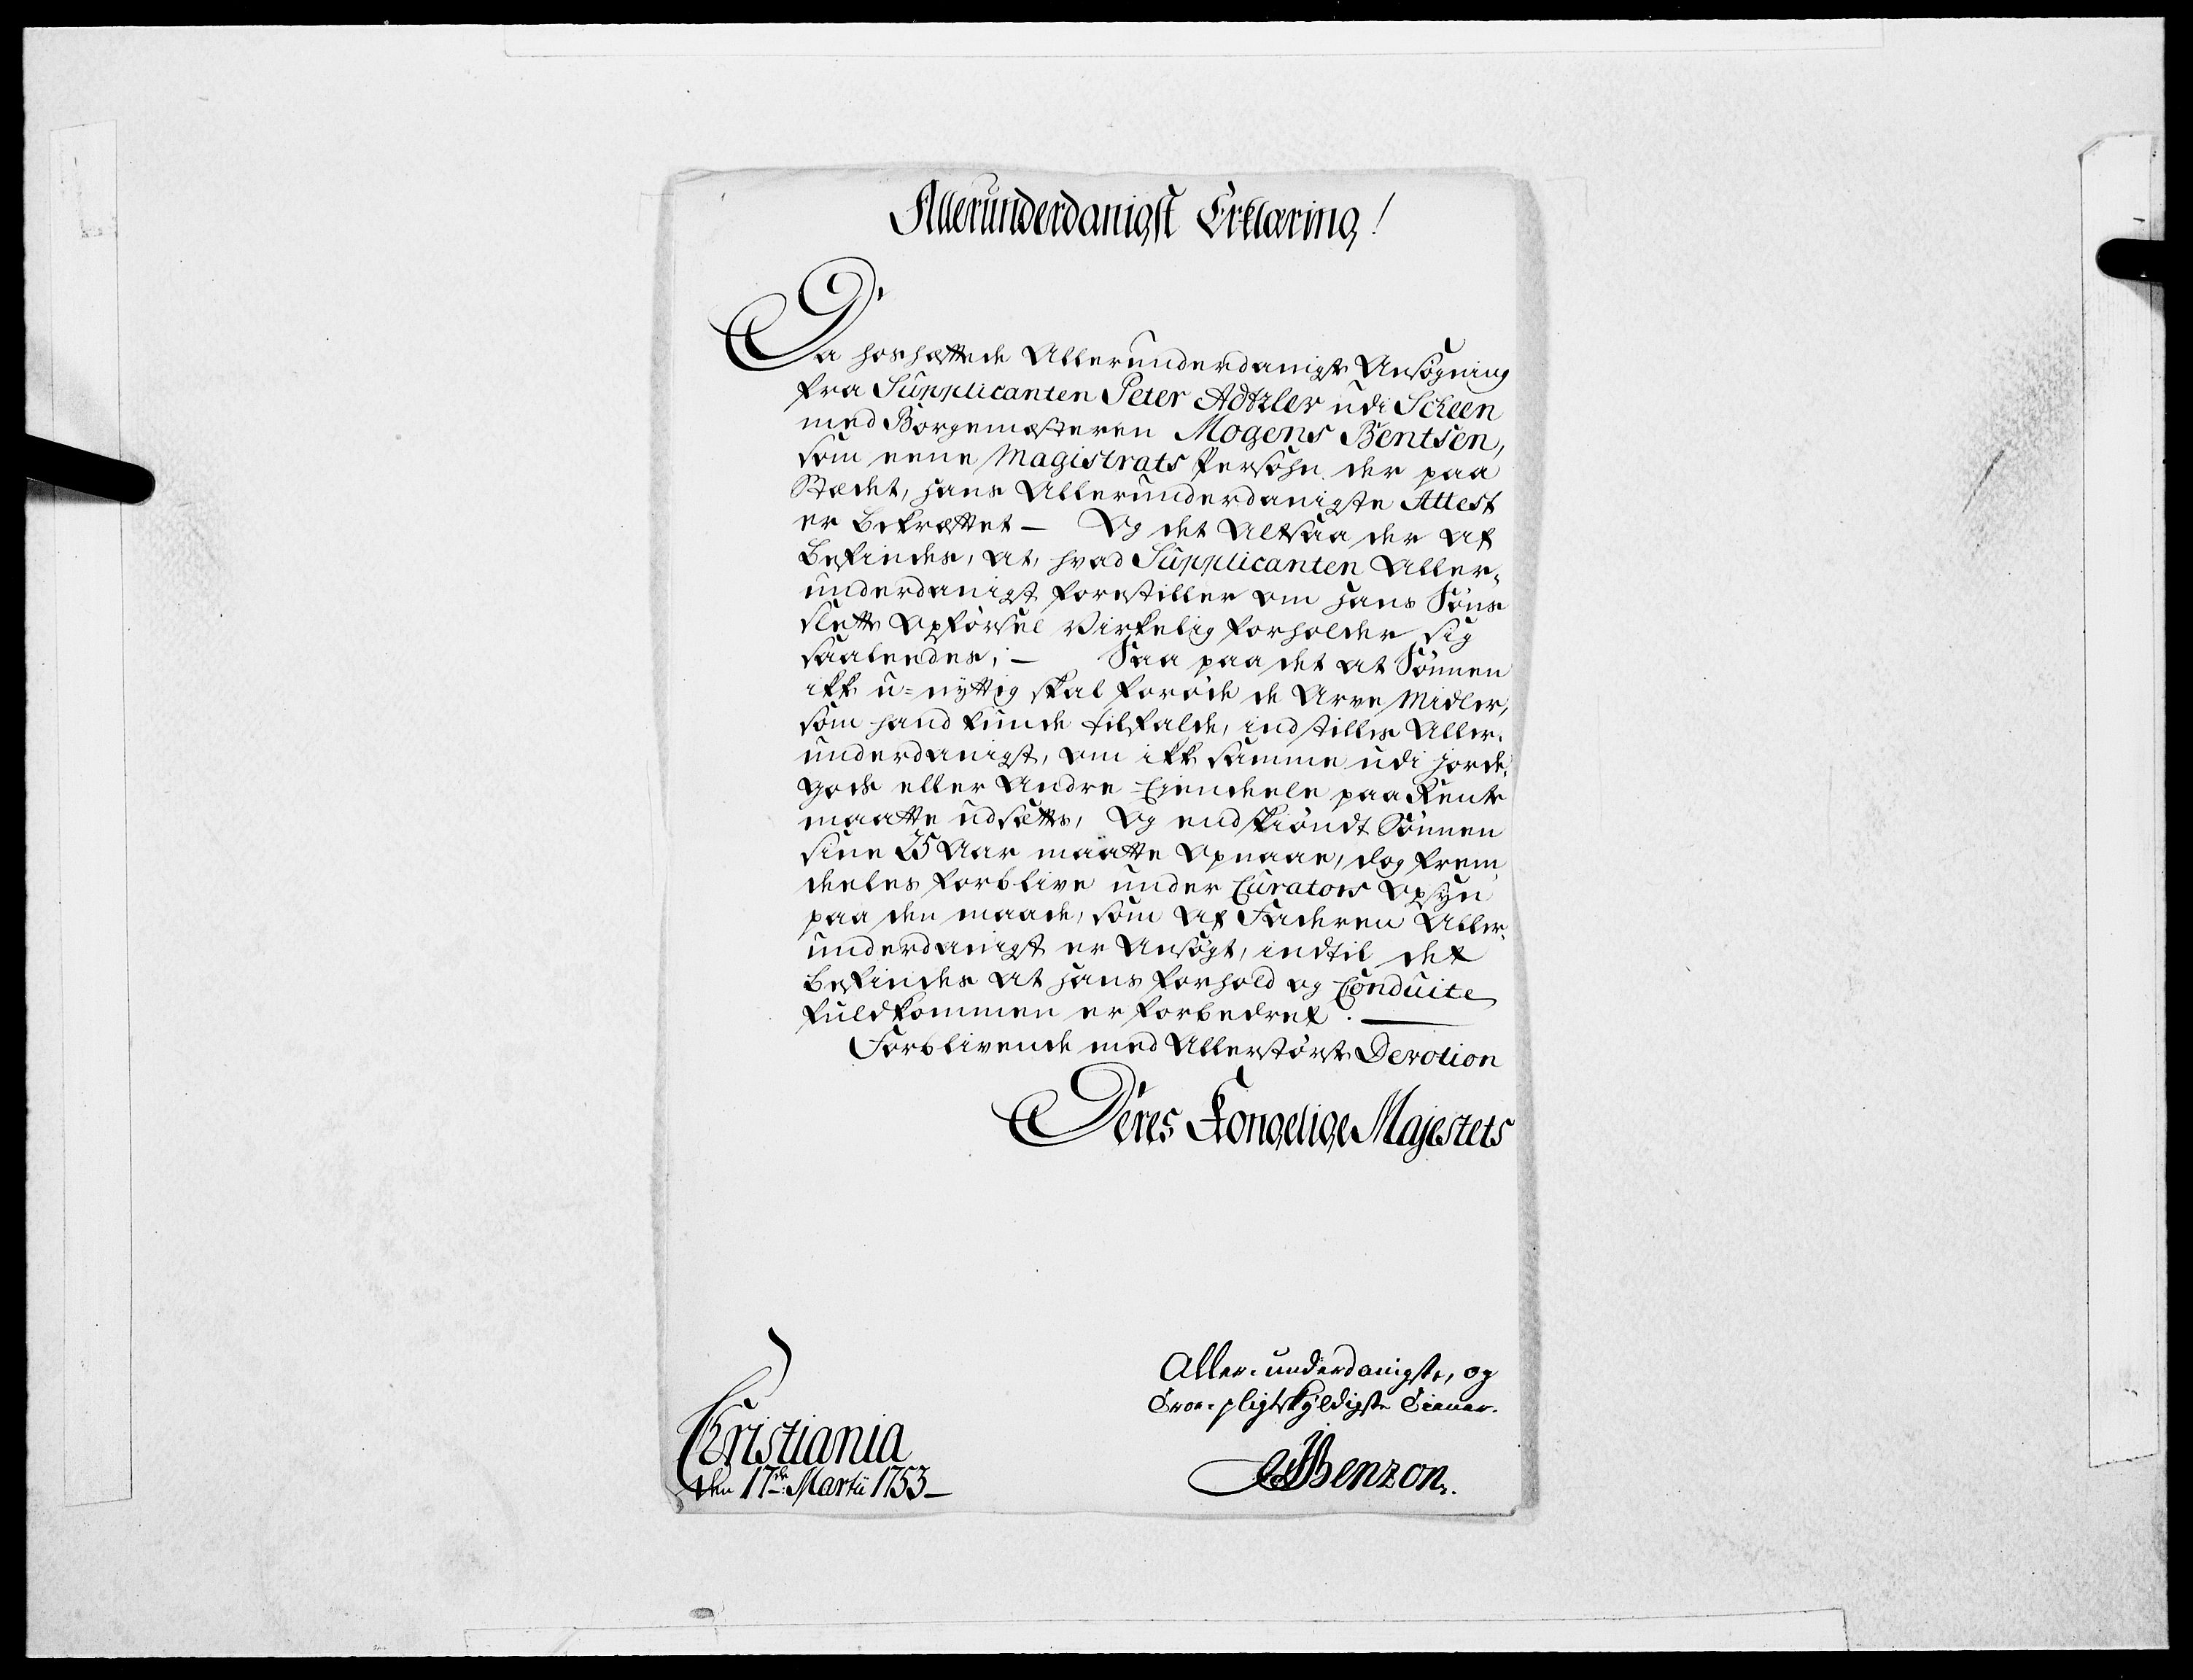 Allerunderdanigst Erklæring!
Da hoshæftede Allerunderdanigste Ansøgning
fra Supplicanten Peter Adtzler udi Scheen
med Borgemesteren Mogens Bentsen,
som eene Magistrats Persohn der paa
Stædet, hans Allerunderdanigste Attest
er bekræftet — Og det Altsaa der af
befindes, at, hvad Supplicanten Aller-
underdanigst forestiller om hans Søns
slette Opførsel Virkelig forholder sig
saaleedes; — Saa paa det at Sønnen
ikke u-nyttig skal forøde de Arve Midler,
som hand kunde tilfalde, indstilles Aller-
underdanigst, om ikke samme udi jorde-
gods eller Andre Eiendeele paa Rente
maatte udsættes, Og endskiøndt Sønnen
sine 25 Aar maatte Opnaae, dog frem-
deeles forblive under Curators Opsyn
paa den maade, som af Faderen Aller-
underdanigst er Ansøgt, indtil det
befindes at hans forhold og Conduite
fuldkommen er forbedret. —
Forblivende med Allerstørste Devotion
Deres Kongelige Majestets
Aller-underdanigste, og
Troe-pligtskyldigste Tienner.
Benzon.
Christiania
den 17de Martii 1753 —